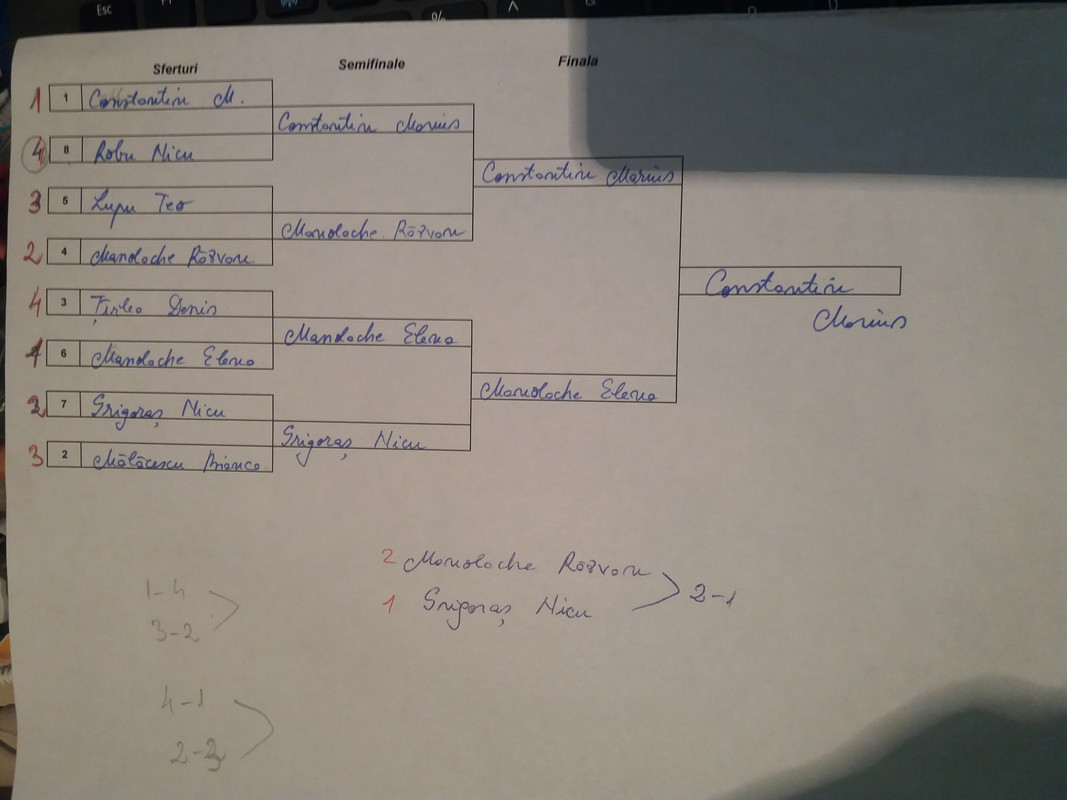 Esc
%
^
Sferturi Semifinale Finala
1 1 Constantin M.
Constantin Marius
4 8 Robu Nicu
Constantin Marius
3 5 Lupu Teo
Manolache Răzvan
2 4 Manolache Răzvan
Constantin
Marius
4 3 Țirlea Denis
Manolache Elena
1 6 Manolache Elena
Manolache Elena
2 7 Grigoraș Nicu
Grigoraș Nicu
3 2 Mălăcescu Bianca
2 Manolache Răzvan
1 Grigoraș Nicu
2-1
1-4
3-2
4-1
2-3